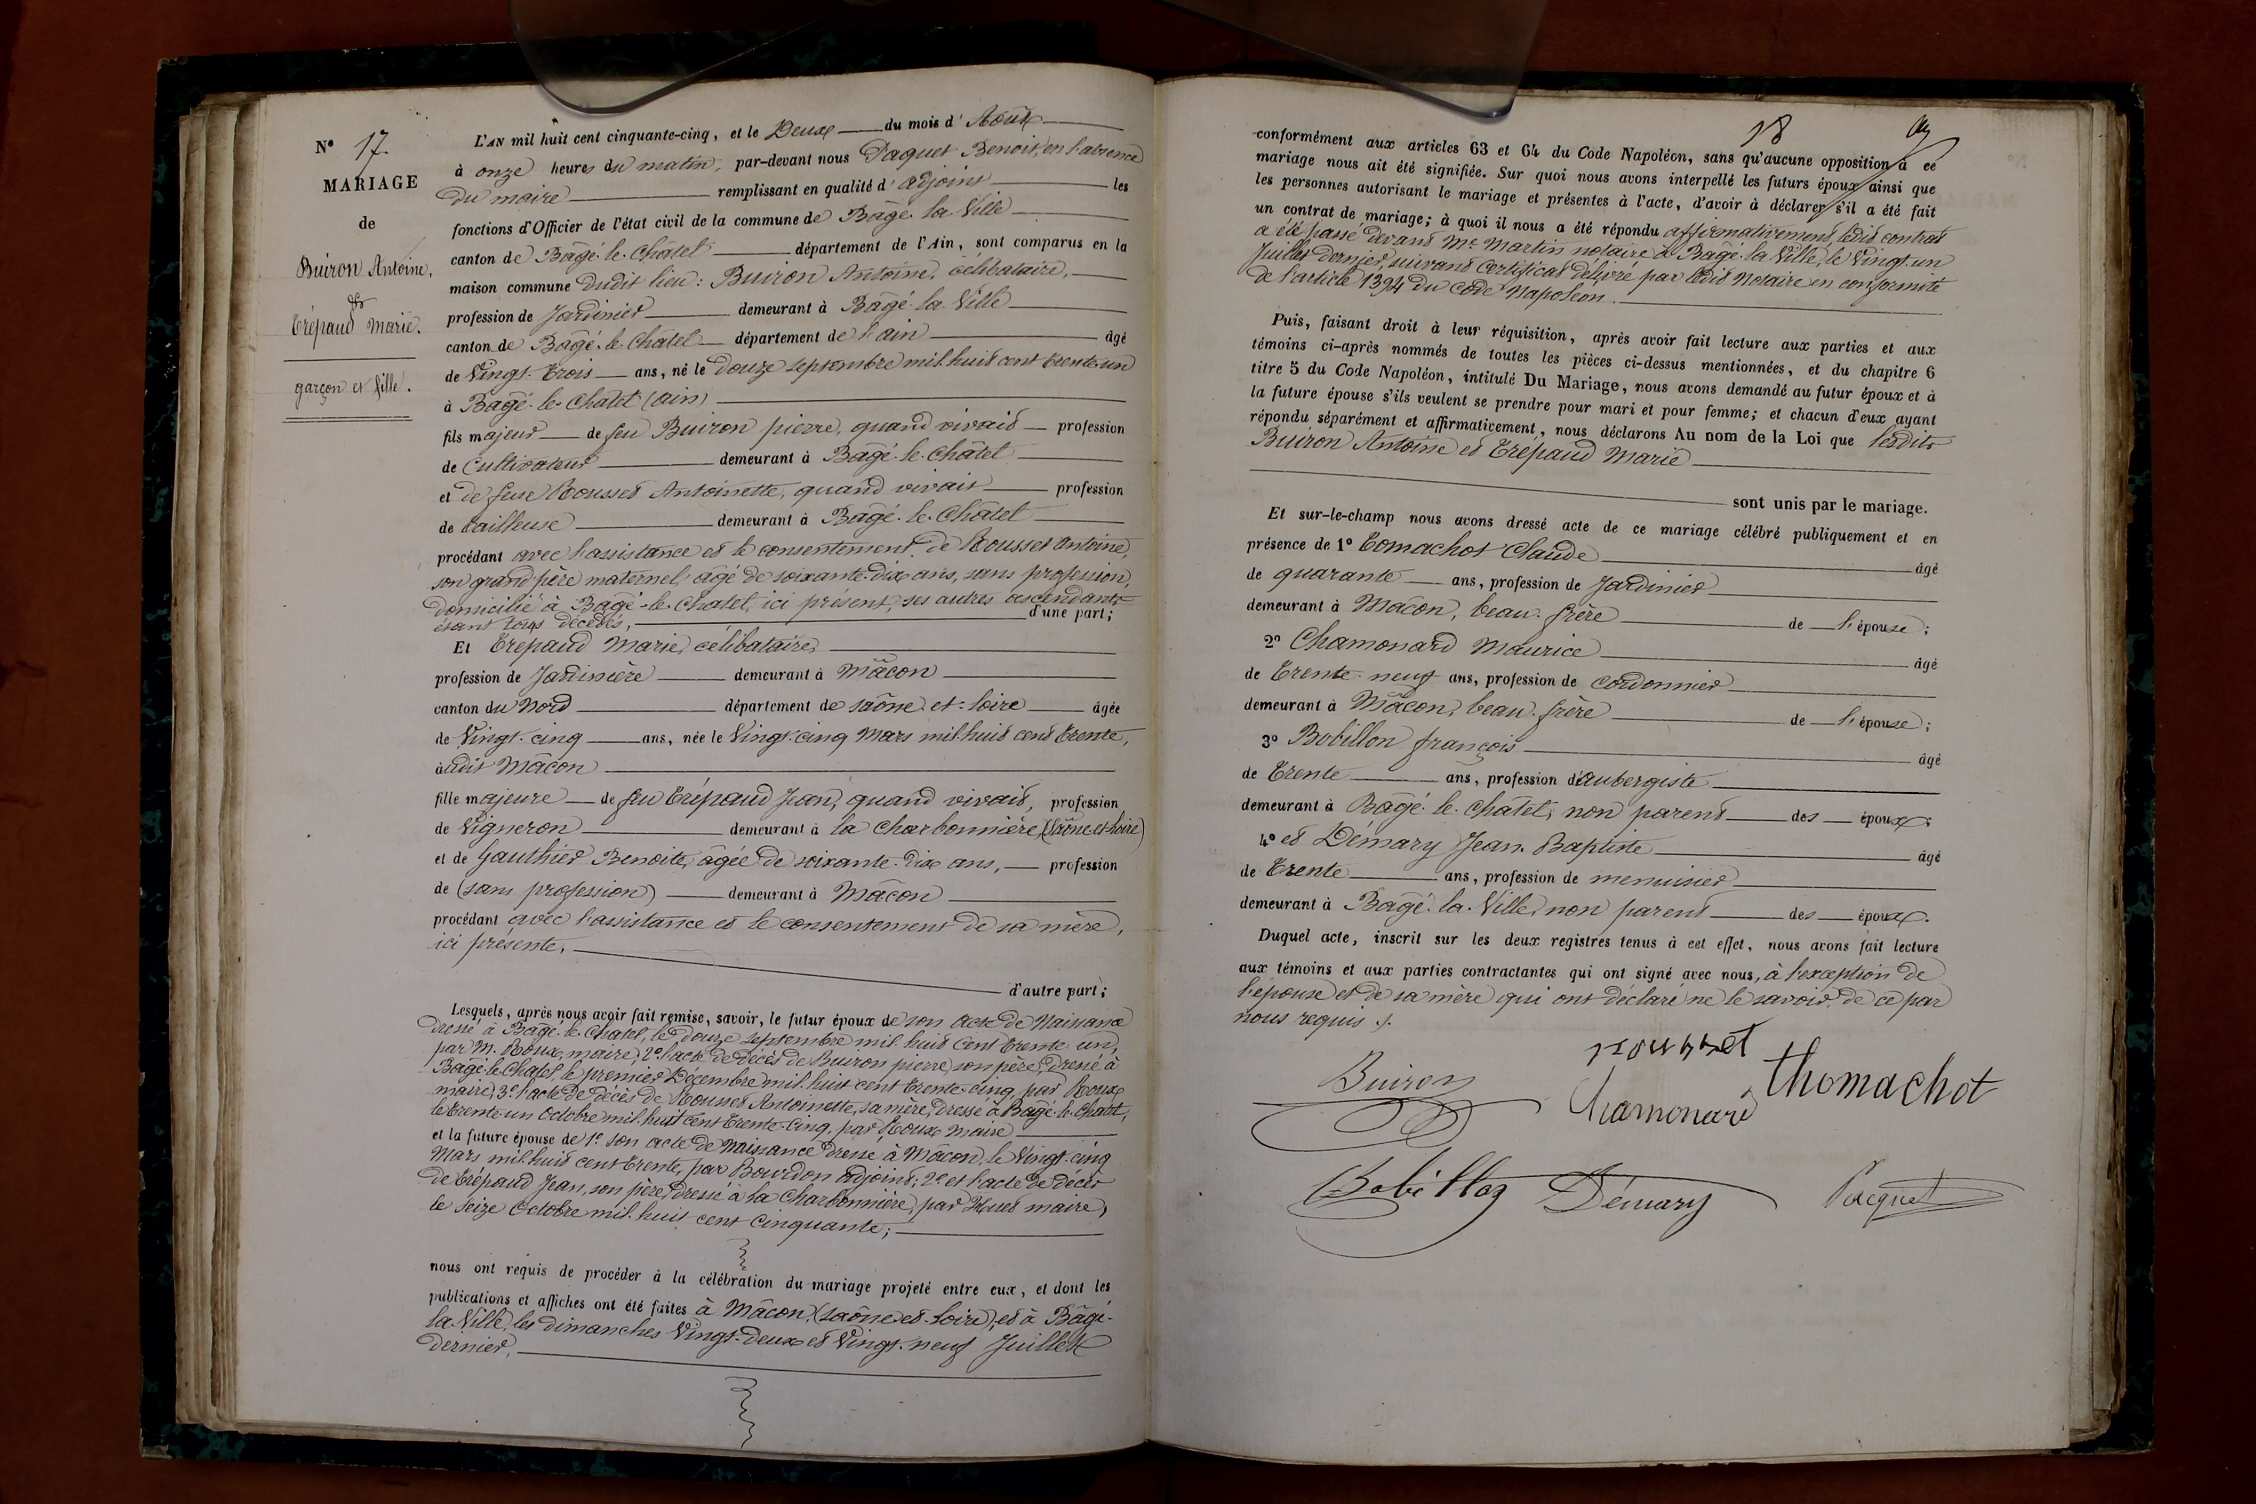 N° 17.
MARIAGE
de
Buiron Antoine,
et
Trépaud Marie.
garçon et fille.
L'AN mil huit cent cinquante-cinq, et le Deux du mois d'Août
à onze heures du matin, par-devant nous Paquet Benoit, en l'absence
du maire remplissant en qualité d'adjoint les
fonctions d'Officier de l'état civil de la commune de Bâgé-la-Ville
canton de Bâgé-le-Châtel département de l'Ain, sont comparus en la
maison commune dudit lieu : Buiron Antoine, célibataire,
profession de Jardinier demeurant à Bâgé-la-Ville
canton de Bâgé-le-Châtel département de l'ain âgé
de Vingt-Trois ans, né le douze septembre mil-huit cent trente-un
à Bagé-le-Chatel (ain)
fils majeur de feu Buiron pierre, quand vivait profession
de Cultivateur demeurant à Bagé-le-Châtel
et de feue Rousset Antoinette, quand vivait profession
de tailleuse demeurant à Bagé-le-Châtel
procédant avec l'assistance et le consentement de Rousset Antoine,
son grand père maternel, âgé de soixante-dix ans, sans profession,
domicilié à Bâgé-le-Chatel, ici présent, ses autres ascendants
étant tous décédés, d'une part;
Et Trépaud Marie, célibataire,
profession de Jardinière demeurant à Mâcon
canton du Nord département de saône-et-loire âgée
de Vingt-cinq ans, née le Vingt-cinq Mars mil-huit cent Trente,
audit Mâcon
fille majeure de feu Trépaud Jean, quand vivait, profession
de Vigneron demeurant à la Charbonnière (Saône-et-Loire)
et de Gauthier Benoite, âgée de soixante-dix ans, profession
de (sans profession) demeurant à Mâcon
procédant avec l'assistance et le consentement de sa mère,
ici présente,
d'autre part;
Lesquels, après nous avoir fait remise, savoir, le futur époux de son acte de Naissance
dressé à Bâgé-le-Chatel, le douze septembre mil-huit cent trente-un,
par M. Roux, maire; 2° l'acte de décès de Buiron pierre, son père, dressé à
Bâgé-le-Chatel, le premier Décembre mil-huit cent trente-cinq, par Roux
maire; 3° l'acte de décès de Rousset Antoinette, sa mère, dressé à Bâgé-le-Chatel,
le trente-un Octobre mil-huit cent trente-cinq, par Roux Maire
et la future épouse de 1° son acte de Naissance dressé à Mâcon, le Vingt-cinq
Mars mil-huit cent trente, par Bourdon adjoint; 2° et l'acte de décès
de Trépaud Jean, son père, dressé à la Charbonnière, par maire,
le seize Octobre mil-huit cent cinquante;
nous ont requis de procéder à la célébration du mariage projeté entre eux, et dont les
publications et affiches ont été faites à Mâcon, (saône-et-Loire), et à Bâgé-
la-Ville, les dimanches Vingt-deux et Vingt-neuf Juillet
dernier,
18
conformément aux articles 63 et 64 du Code Napoléon, sans qu'aucune opposition à ce
mariage nous ait été signifiée. Sur quoi nous avons interpellé les futurs époux ainsi que
les personnes autorisant le mariage et présentes à l'acte, d'avoir à déclarer s'il a été fait
un contrat de mariage; à quoi il nous a été répondu affirmativement, ledit contrat
a été passé devant Me Martin notaire à Bagé-la-Ville, le Vingt-un
Juillet dernier, suivant Certificat délivré par ledit Notaire en conformité
de l'article 1394 du code Napoléon.
Puis, faisant droit à leur réquisition, après avoir fait lecture aux parties et aux
témoins ci-après nommés de toutes les pièces ci-dessus mentionnées, et du chapitre 6
titre 5 du Code Napoléon, intitulé Du Mariage, nous avons demandé au futur époux et à
la future épouse s'ils veulent se prendre pour mari et pour femme; et chacun d'eux ayant
répondu séparément et affirmativement, nous déclarons Au nom de la Loi que lesdits
Buiron Antoine et Trépaud Marie
sont unis par le mariage.
Et sur-le-champ nous avons dressé acte de ce mariage célébré publiquement et en
présence de 1° Tomachot Claude âgé
de quarante ans, profession de Jardinier
demeurant à Mâcon, beau-frère de l'épouse;
2° Chamonard Maurice âgé
de Trente-neuf ans, profession de cordonnier
demeurant à Mâcon, beau-frère de l'épouse;
3° Bobillon françois âgé
de Trente ans, profession d'aubergiste
demeurant à Bâgé-le-Châtel, non parent des époux;
4° et Démary Jean-Baptiste âgé
de Trente ans, profession de menuisier
demeurant à Bagé-la-Ville, non parent des époux.
Duquel acte, inscrit sur les deux registres tenus à cet effet, nous avons fait lecture
aux témoins et aux parties contractantes qui ont signé avec nous, à l'exception de
l'épouse et de sa mère qui ont déclaré ne le savoir, de ce par
nous requis.
Rousset
Buiron
Chamonard
Thomachot
Bobillon
Démary
Pacquet